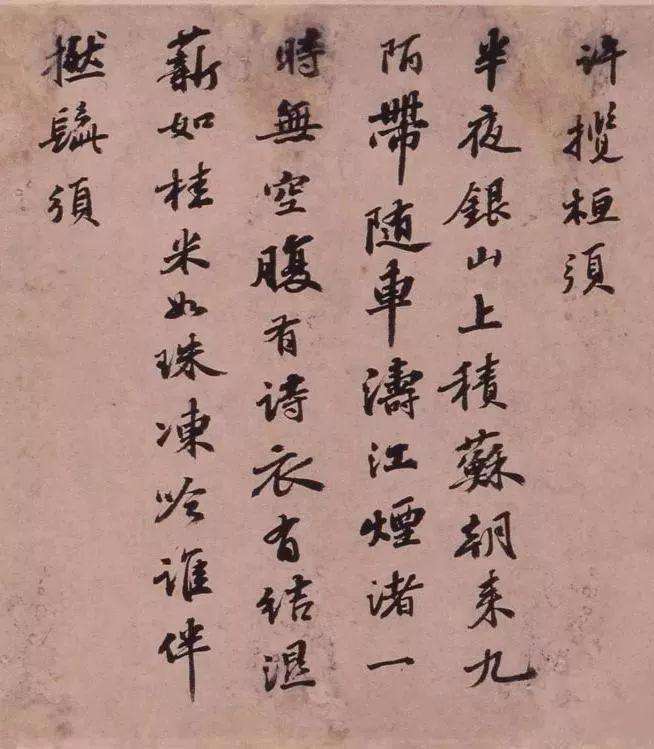 許攬桓須
半夜銀山上積蘇朝來九
陌帶随車濤江煙渚一
時無空腹有詩衣有結濕
薪如桂米如珠凍吟誰伴
撚髭須